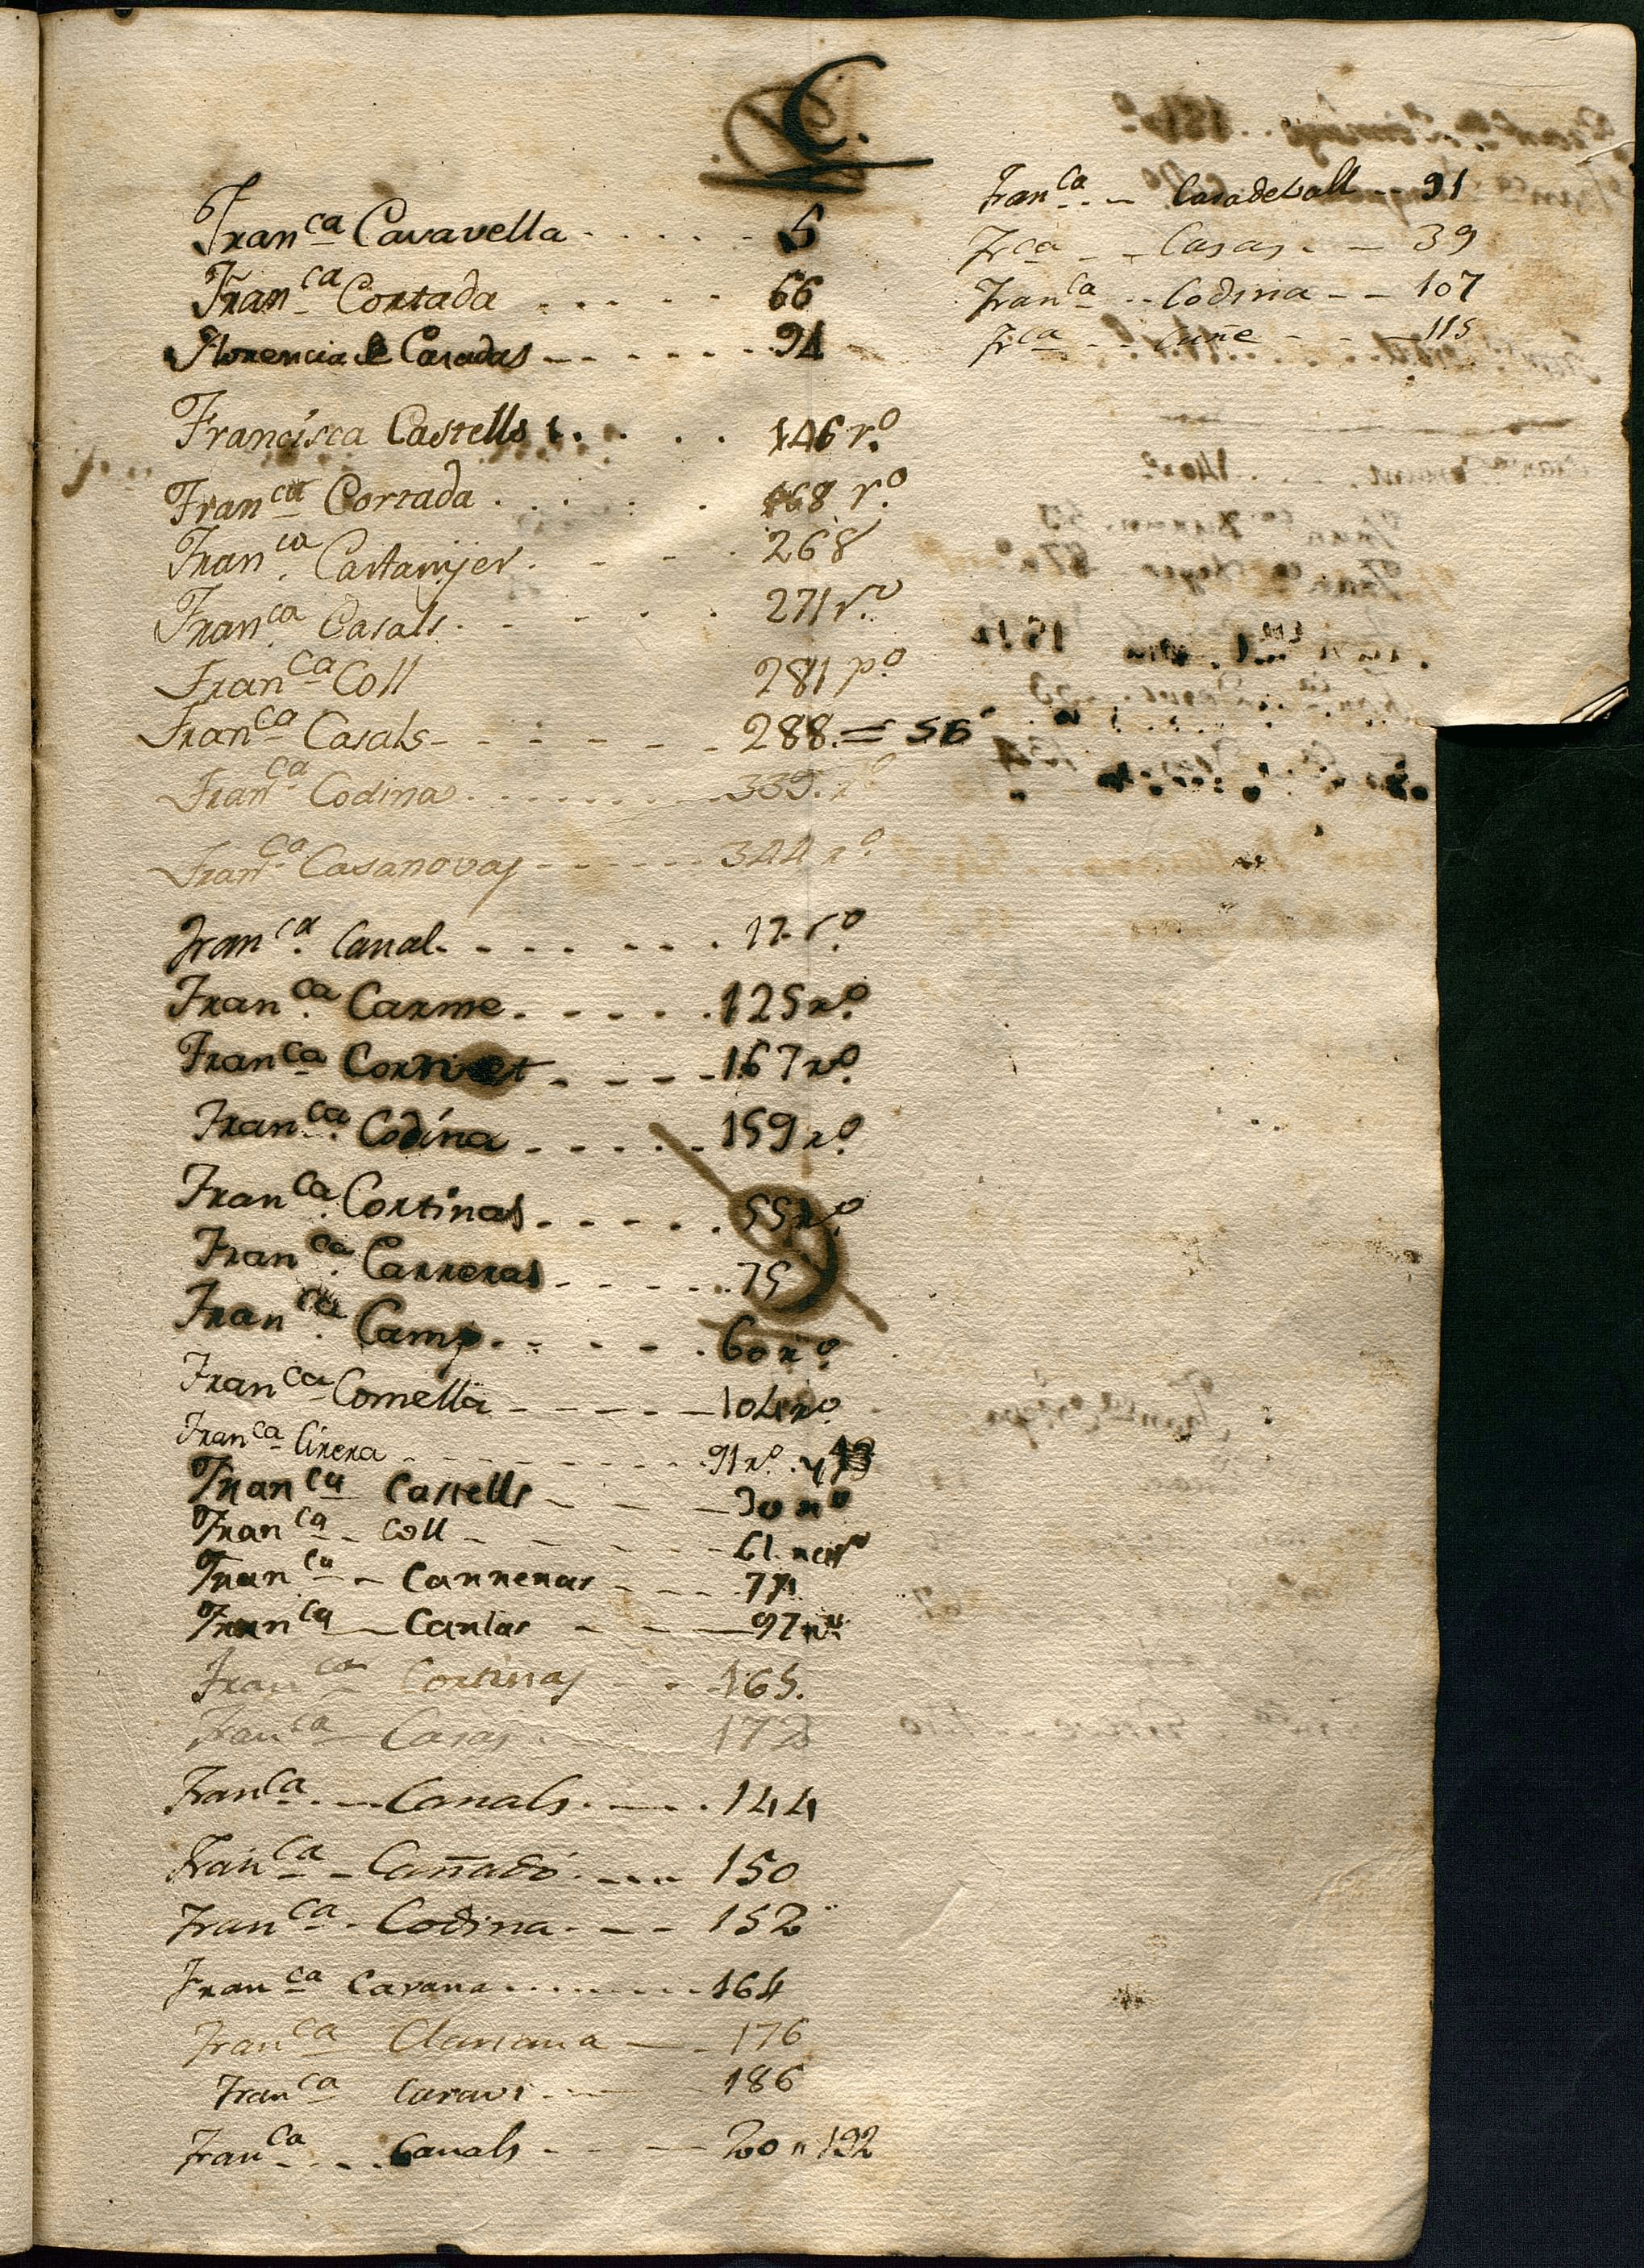 C.
Fran.ca Cavavella - - - - - 5
Fran.ca Cortada - - - - - 66
Florencia Casadas - - - - - - 94
Francisca Castells . . . . 146 r.o
Fran.ca Cortada . . . . 168 r.o
Fran.ca Castanyer . - - . 268
Fran.ca Casals . - - - . 271 r.o
Fran.ca Coll 281 p.o
Fran.ca Casals - - - - - - 288. = 56
Fran.ca Codina . . . . . . . 339. r.o
Fran.ca Casanovas - - - - - - 344 r.o
Fran.ca Canal - - - - - - . 17 r.o
Fran.ca Carme . - - - - . 125 r.o
Fran.ca - - - - - 167 r.o
Fran.ca Codina . - - - - . 159 r.o
Fran.ca Cortinas . - - - - . 55 r.o
Fran.ca Carreras - - - - - . 75
Fran.ca Camp . - - - - . 60 r.o
Fran.ca Comella - - - - - 104 r.o
Fran.ca Cirera - - - - - - - - 91 r.o y 43
Fran.ca Castells - - - - 30 r.o
Fran.ca - Coll - - - - - - 61.
Fran.ca - Carreras - - - - 77
Fran.ca - Carlas - - - 97
Fran.ca Cortinas - - - 165.
Fran.ca Casas . 172
Fran.ca . - Canals . - - . 144
Fran.ca - Cañadó . - - - 150
Fran.ca . Codina . - - 152
Fran.ca Cavana . . . . . . . . 164
Fran.ca Clariana - - 176
Fran.ca Curavi - - - 186
Fran.ca . - . Canals - - - 20 " 192
Fran.ca . - Casadevall - - 91
Fr.ca - - Casas . - 39
Fran.ca - - Codina - - 107
Fr.ca - - Cuñe - - - 115